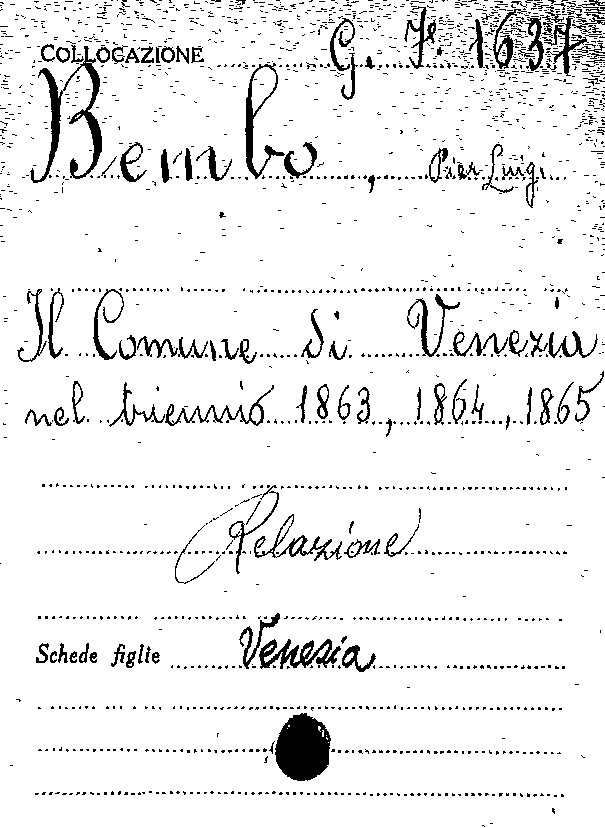 COLLOCAZIONE G. Fe. 1637
Bembo, Pier Luigi
Il Comune di Venezia
nel triennio 1863, 1864, 1865
Relazione
Schede figlie Venezia